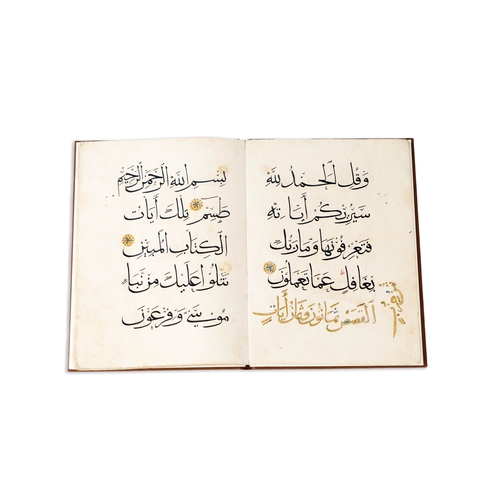 وقل الحمد لله
سيريكم آياته
فتعرفونها وما ربك
بغافل عما تعملون
القصص ثمانون وثمان آيات
بسم الله الرحمن الرحيم
طسم تلك آيات
الكتاب المبين
نتلوا عليك من نبإ
موسى وفرعون